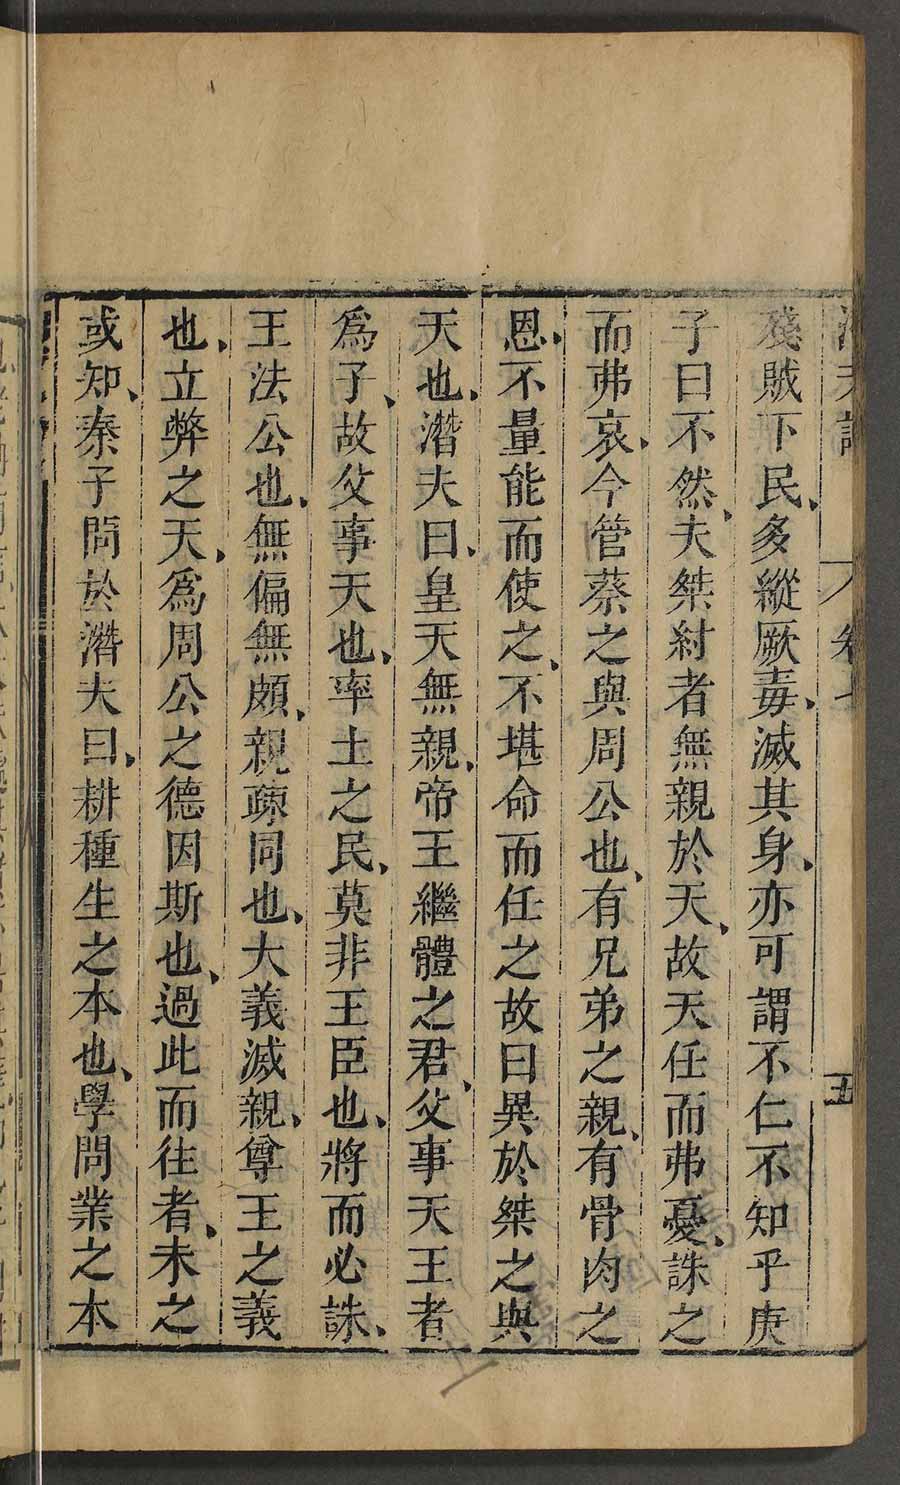 殘賊下民、多縱厥毒、滅其身、亦可謂不仁不知乎庚
子曰不然、夫桀紂者無親於天、故天任而弗憂、誅之
而弗哀、今管蔡之與周公也、有兄弟之親、有骨肉之
恩、不量能而使之、不堪命而任之故曰異於桀之與
天也、潛夫曰、皇天無親、帝王繼體之君、父事天王者
爲子、故父事天也、率土之民、莫非王臣也、將而必誅、
王法公也、無偏無頗、親疎同也、大義滅親、尊王之義
也、立弊之天、爲周公之德因斯也、過此而往者、未之
或知、秦子問於潛夫曰、耕種生之本也、學問業之本
卷七
五